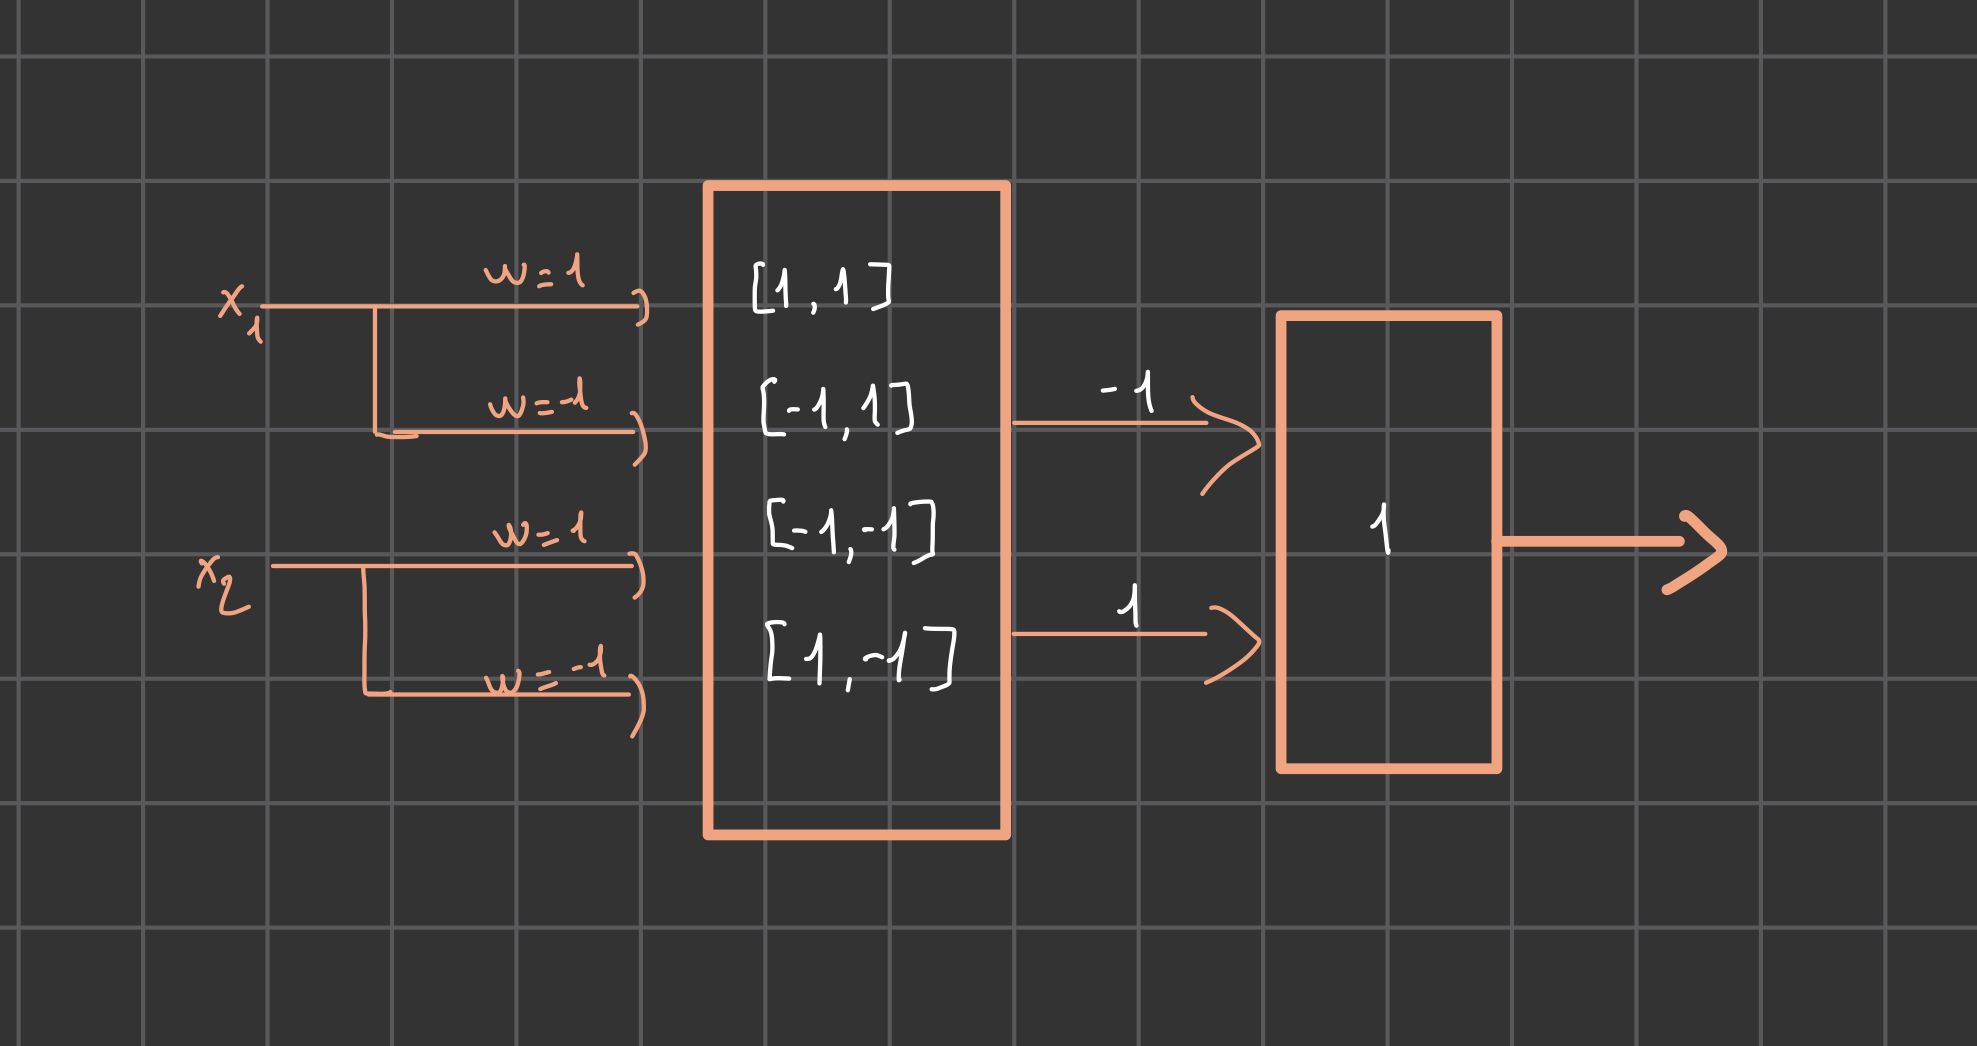 x₁
w=1
w=-1
x₂
w=1
w=-1
[1,1]
[-1,1]
[-1,-1]
[1,-1]
-1
1
1